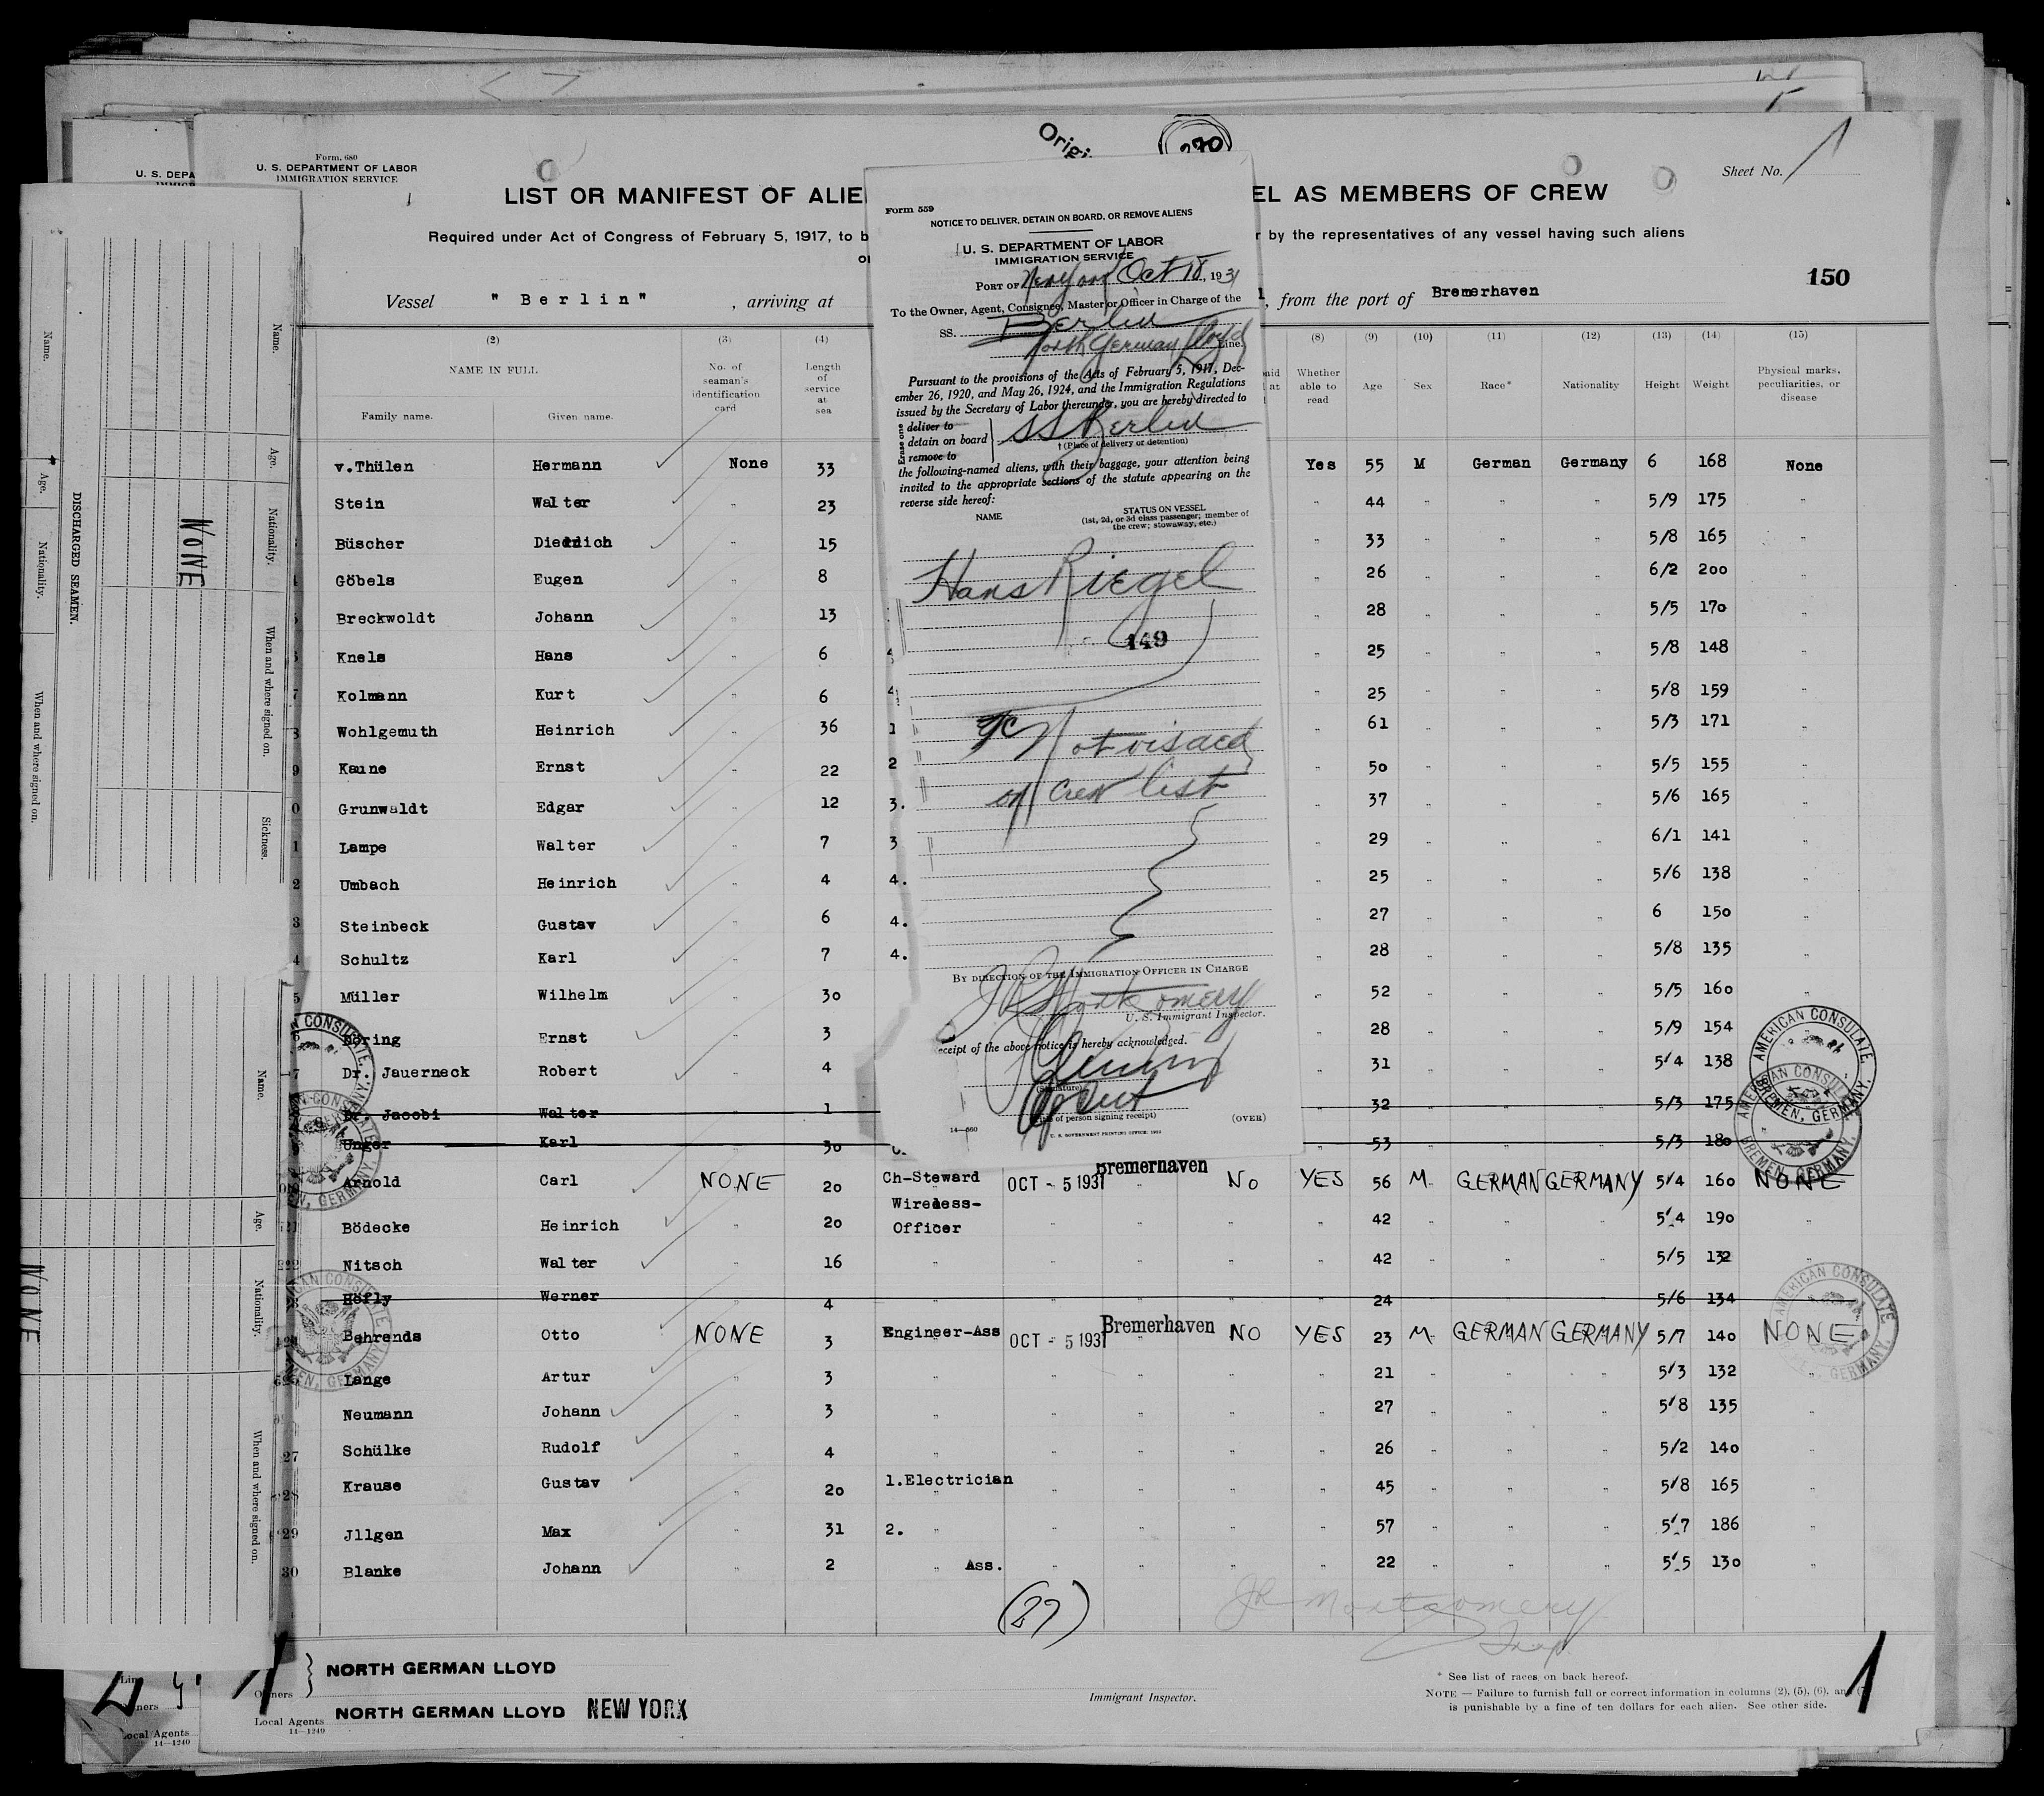 Form 680
U. S. DEPARTMENT OF LABOR
IMMIGRATION SERVICE
U. S. DEPA
Origi
Sheet No. 1
LIST OR MANIFEST OF ALIE
EL AS MEMBERS OF CREW
Required under Act of Congress of February 5, 1917, to b
r by the representatives of any vessel having such aliens
150
Vessel " Berlin " , arriving at
, from the port of Bremerhaven
(2) (3) (4) (8) (9) (10) (11) (12) (13) (14) (15)
NAME IN FULL
Family name. Given name.
No. of seaman's identification card
Length of service at sea
Whether able to read
Age
Sex
Race*
Nationality
Height
Weight
Physical marks, peculiarities, or disease
v.Thülen Hermann None 33 Yes 55 M German Germany 6 168 None
Stein Walter " 23 " 44 " " " 5/9 175 "
Büscher Diedrich " 15 " 33 " " " 5/8 165 "
Göbels Eugen " 8 " 26 " " " 6/2 200 "
Breckwoldt Johann " 13 " 28 " " " 5/5 170 "
Knels Hans " 6 " 25 " " " 5/8 148 "
Kolmann Kurt " 6 " 25 " " " 5/8 159 "
Wohlgemuth Heinrich " 36 " 61 " " " 5/3 171 "
Kaune Ernst " 22 2 " 50 " " " 5/5 155 "
Grunwaldt Edgar " 12 3. " 37 " " " 5/6 165 "
Lampe Walter " 7 3 " 29 " " " 6/1 141 "
Umbach Heinrich " 4 4. " 25 " " " 5/6 138 "
Steinbeck Gustav " 6 4. " 27 " " " 6 150 "
Schultz Karl " 7 4. " 28 " " " 5/8 135 "
Müller Wilhelm " 30 " 52 " " " 5/5 160 "
Döring Ernst " 3 " 28 " " " 5/9 154 "
Dr. Jauerneck Robert " 4 " 31 " " " 5/4 138 "
Dr. Jacobi Walter " 1 " 32 " " " 5/3 175 "
Unger Karl " 30 " 53 " " " 5/3 180 "
Arnold Carl NONE 20 Ch-Steward OCT - 5 1931 Bremerhaven NO YES 56 M GERMAN GERMANY 5/4 160 NONE
Bödecke Heinrich " 20 Wireless-Officer " " " " 42 " " " 5/4 190 "
Nitsch Walter " 16 " " " " " 42 " " " 5/5 132 "
Höfly Werner " 4 " " " " " 24 " " " 5/6 134 "
Behrends Otto NONE 3 Engineer-Ass OCT - 5 1931 Bremerhaven NO YES 23 M GERMAN GERMANY 5/7 140 NONE
Lange Artur " 3 " " " " " 21 " " " 5/3 132 "
Neumann Johann " 3 " " " " " 27 " " " 5/8 135 "
27 Schülke Rudolf " 4 " " " " " 26 " " " 5/2 140 "
28 Krause Gustav " 20 1.Electrician " " " " 45 " " " 5/8 165 "
29 Jllgen Max " 31 2. " " " " " 57 " " " 5/7 186 "
30 Blanke Johann " 2 " Ass. " " " " 22 " " " 5/5 130 "
(27)
JR Montgomery
Insp
Owners NORTH GERMAN LLOYD
Local Agents NORTH GERMAN LLOYD NEW YORK
14—1240
Immigrant Inspector.
* See list of races on back hereof.
NOTE — Failure to furnish full or correct information in columns (2), (5), (6), an
is punishable by a fine of ten dollars for each alien. See other side.
1
Form 559
NOTICE TO DELIVER, DETAIN ON BOARD, OR REMOVE ALIENS
U. S. DEPARTMENT OF LABOR
IMMIGRATION SERVICE
PORT OF New York Oct 18, 1931
To the Owner, Agent, Consignee, Master or Officer in Charge of the
SS. Berlin
North German Lloyd Line.
Pursuant to the provisions of the Acts of February 5, 1917, Dec-
ember 26, 1920, and May 26, 1924, and the Immigration Regulations
issued by the Secretary of Labor thereunder, you are hereby directed to
Erase one
deliver to
detain on board
remove to
SS Berlin
† (Place of delivery or detention)
the following-named aliens, with their baggage, your attention being
invited to the appropriate sections of the statute appearing on the
reverse side hereof:
NAME
STATUS ON VESSEL
(1st, 2d, or 3d class passenger; member of
the crew; stowaway, etc.)
Hans Riegel
149
Not visaed
on crew list
BY DIRECTION OF THE IMMIGRATION OFFICER IN CHARGE
JR Montgomery
U. S. Immigrant Inspector.
eceipt of the above notice is hereby acknowledged.
(Signature)
of person signing receipt)
(OVER)
14—560
U. S. GOVERNMENT PRINTING OFFICE: 1929
AMERICAN CONSULATE,
BREMEN, GERMANY.
AMERICAN CONSULATE
BREMEN, GERMANY.
AMERICAN CONSULATE
BREMEN, GERMANY.
DISCHARGED SEAMEN.
Name.
Age.
Nationality.
When and where signed on.
Name.
Age.
Nationality.
When and where signed on.
Sickness.
NONE
Name.
Age.
Nationality.
When and where signed on.
NONE
Local Agents
14—1240